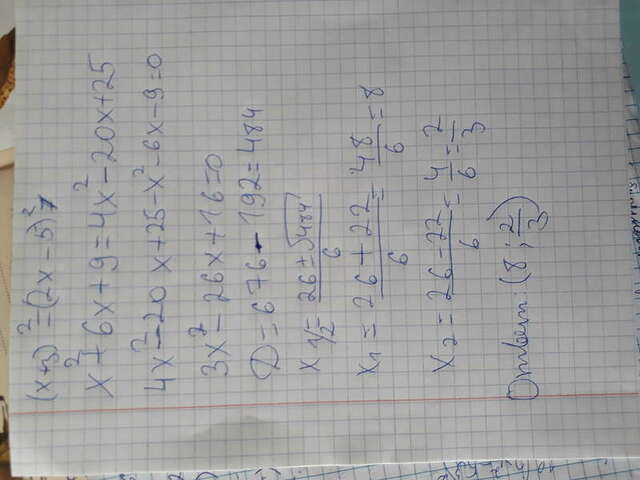 (x+3)²=(2x-5)²
x²+6x+9=4x²-20x+25
4x²-20x+25-x²-6x-9=0
3x²-26x+16=0
D=676-192=484
x1/2=26±√484/6
x1=26+22/6=48/6=8
x2=26-22/6=4/6=2/3
Ответ: (8;2/3)